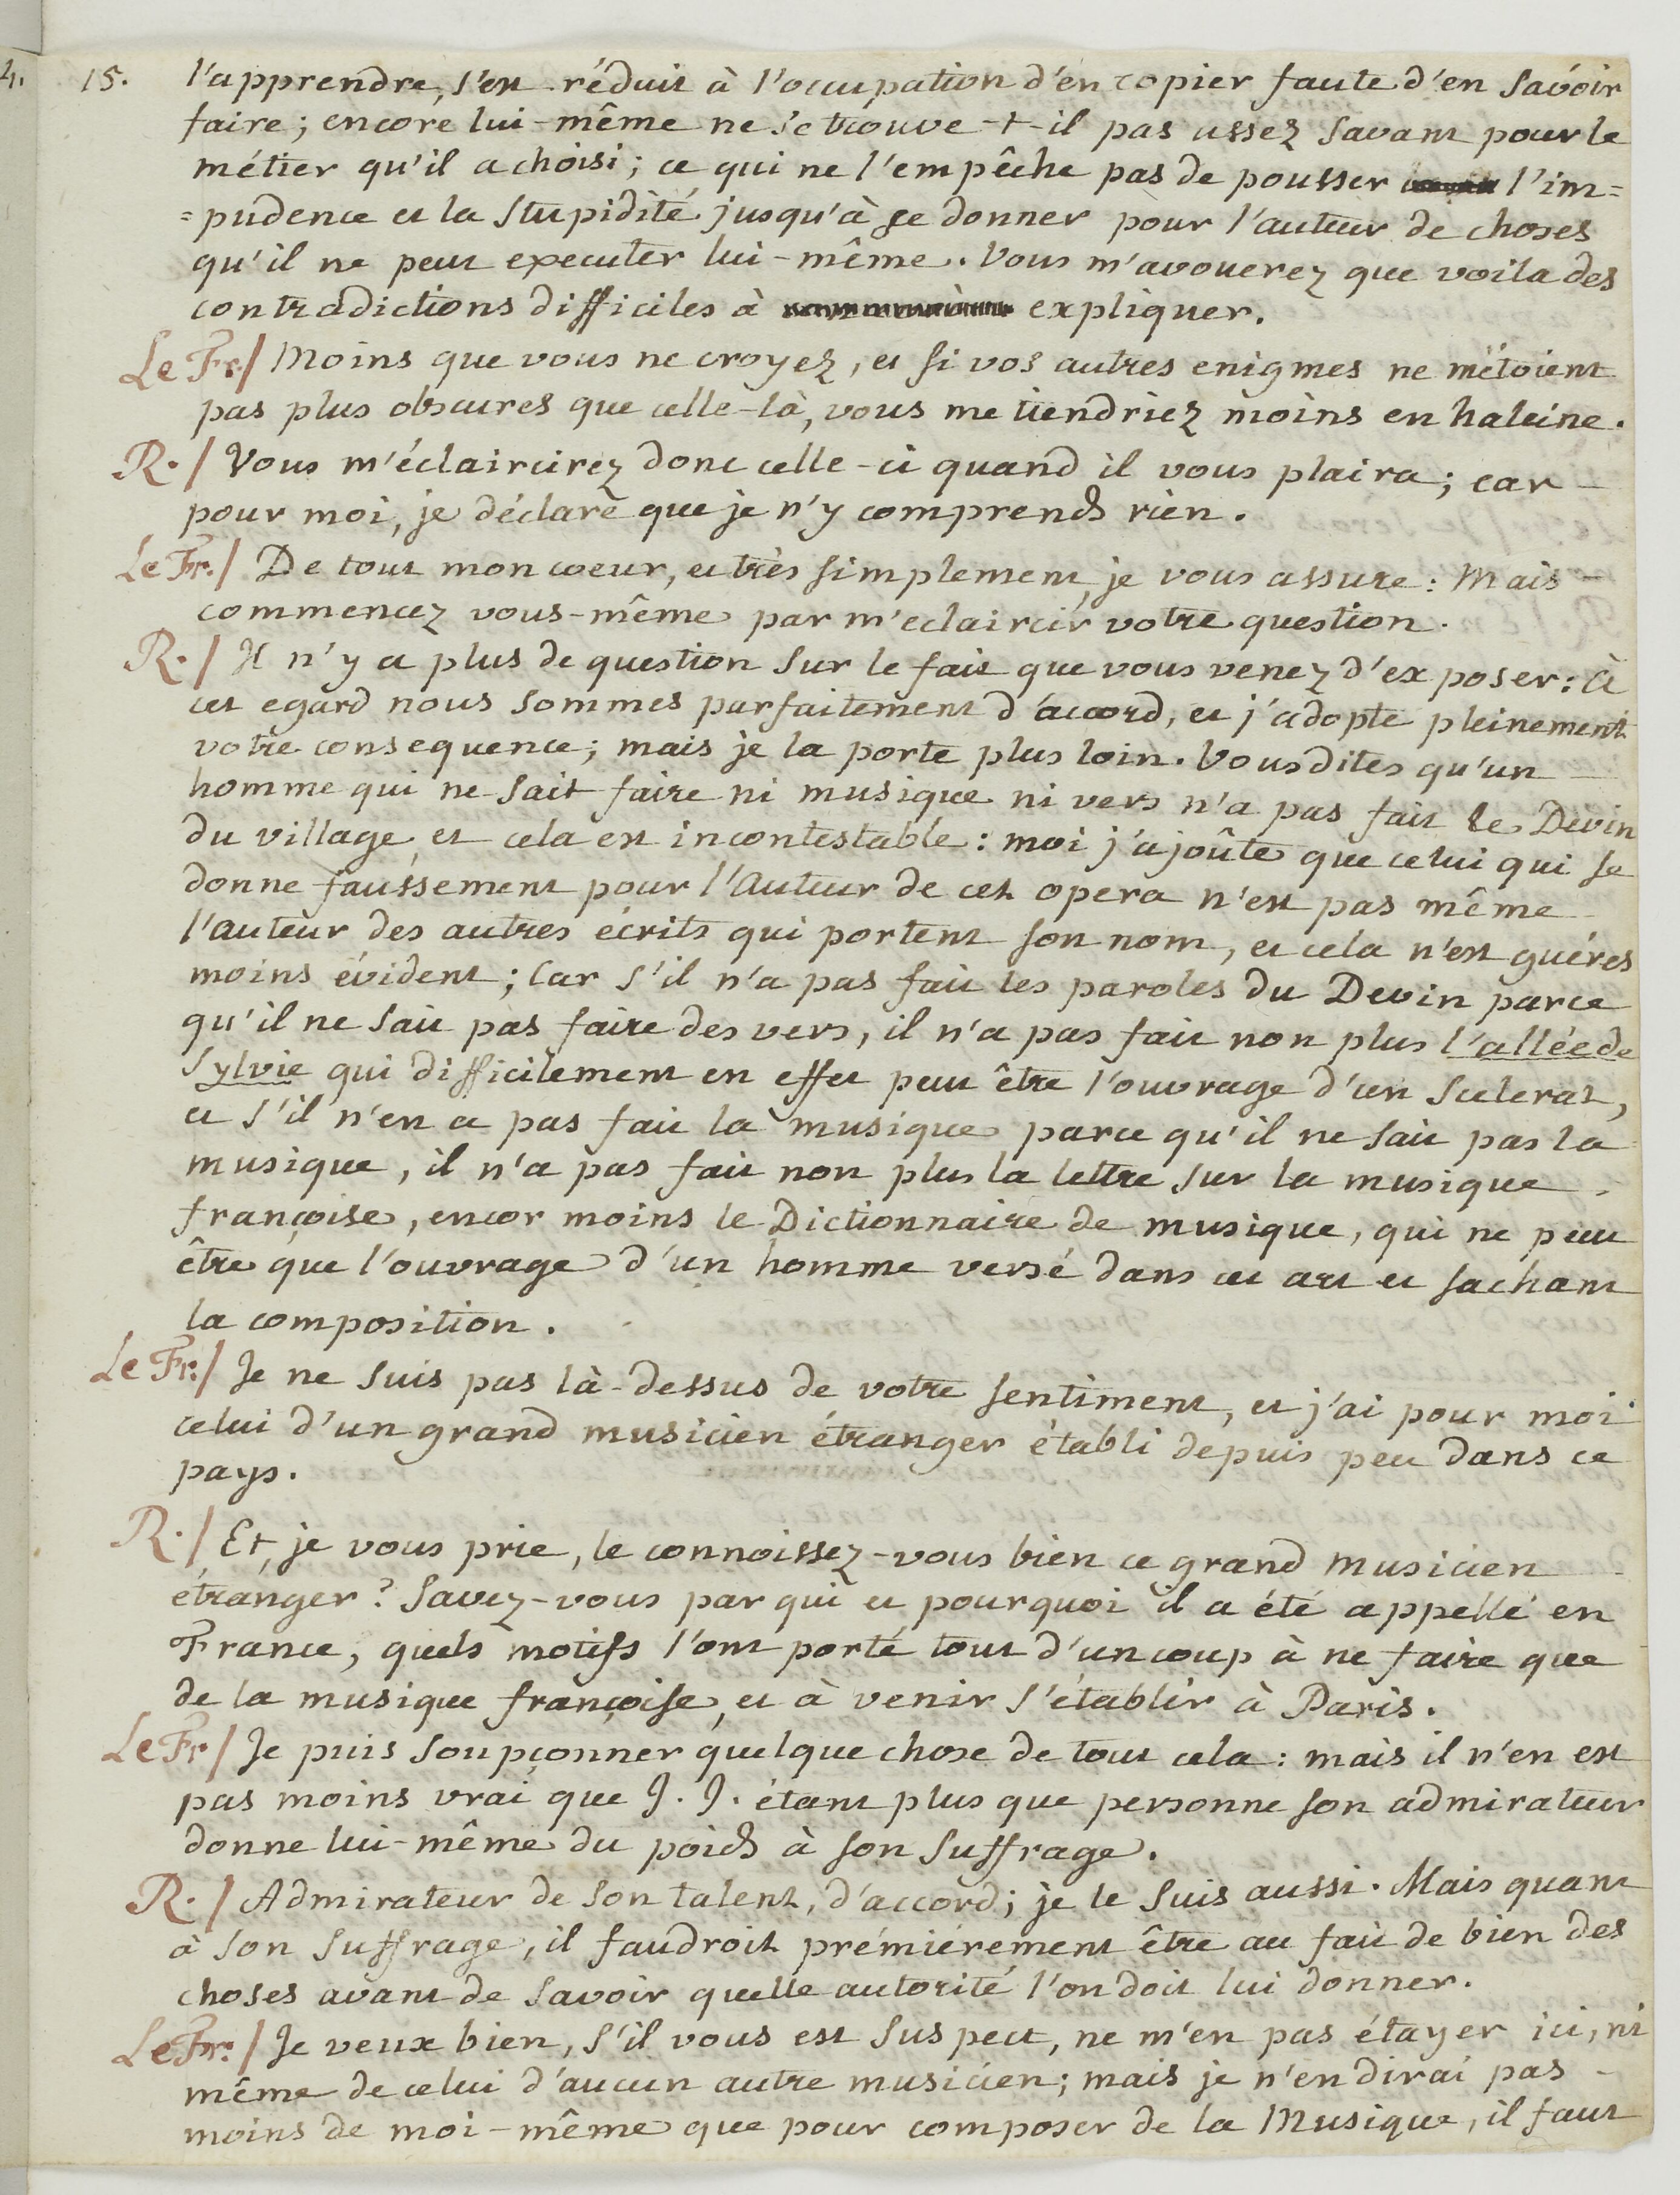 15. l'apprendre, s'est réduit à l'occupation d'en copier faute d'en savoir
faire; encore lui-même ne se trouve-t-il pas assez savant pour le
métier qu'il a choisi; ce qui ne l'empêche pas de pousser l'im=
=pudence et la stupidité jusqu'à se donner pour l'auteur de choses
qu'il ne peut executer lui-même. Vous m'avouerez que voila des
contradictions difficiles à expliquer.
Le Fr./ Moins que vous ne croyez, et si vos autres enigmes ne m'étoient
pas plus obscures que celle-là, vous me tiendriez moins en haleine.
R./ Vous m'éclaircirez donc celle-ci quand il vous plaira; car
pour moi, je déclare que je n'y comprends rien.
Le Fr./ De tout mon coeur, et très simplement, je vous assure: Mais
commencez vous-même par m'eclaircir votre question.
R./ Il n'y a plus de question sur le fait que vous venez d'exposer: à
cet egard nous sommes parfaitement d'accord, et j'adopte pleinement
votre consequence; mais je la porte plus loin. Vous dites qu'un
homme qui ne sait faire ni musique ni vers n'a pas fait le Devin
du village, et cela est incontestable: moi j'ajoûte que celui qui se
donne faussement pour l'Auteur de cet opera n'est pas même
l'auteur des autres écrits qui portent son nom, et cela n'est guéres
moins évident; Car s'il n'a pas fait les paroles du Devin parce
qu'il ne sait pas faire des vers, il n'a pas fait non plus l'allée de
Sylvie qui difficilement en effet peut être l'ouvrage d'un scelerat,
et s'il n'en a pas fait la musique parce qu'il ne sait pas la
musique, il n'a pas fait non plus la lettre sur la musique
françoise, encor moins le Dictionnaire de musique, qui ne peut
être que l'ouvrage d'un homme versé dans cet art et sachant
la composition.
Le Fr./ Je ne suis pas là-dessus de votre sentiment, et j'ai pour moi
celui d'un grand musicien étranger établi depuis peu dans ce
pays.
R./ Et, je vous prie, le connoissez-vous bien ce grand musicien
étranger? Savez-vous par qui et pourquoi il a été appellé en
France, quels motifs l'ont porté tout d'un coup à ne faire que
de la musique françoise, et à venir s'établir à Paris.
Le Fr/ Je puis soupçonner quelque chose de tout cela: mais il n'en est
pas moins vrai que J. J. étant plus que personne son admirateur
donne lui-même du poids à son suffrage.
R./ Admirateur de son talent, d'accord; je le suis aussi. Mais quant
à son suffrage, il faudroit prémiérement être au fait de bien des
choses avant de savoir quelle autorité l'on doit lui donner.
Le Fr./ Je veux bien, s'il vous est suspect, ne m'en pas étayer ici, ni
même de celui d'aucun autre musicien; mais je n'en dirai pas
moins de moi-même que pour composer de la Musique, il faut